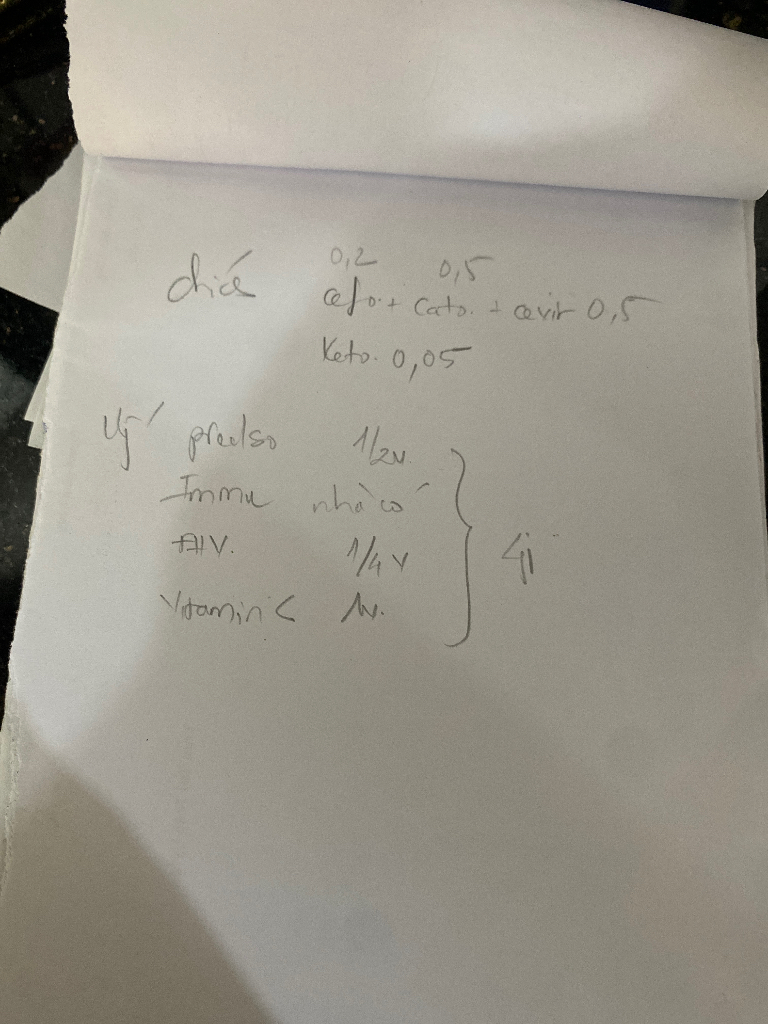 0,2 0,5
chích cefo. + cato. + cevit 0,5
Keto. 0,05
Uý predso 1/2v
Immu nhà có
AIV. 1/4 v
Vitamin C 1v.